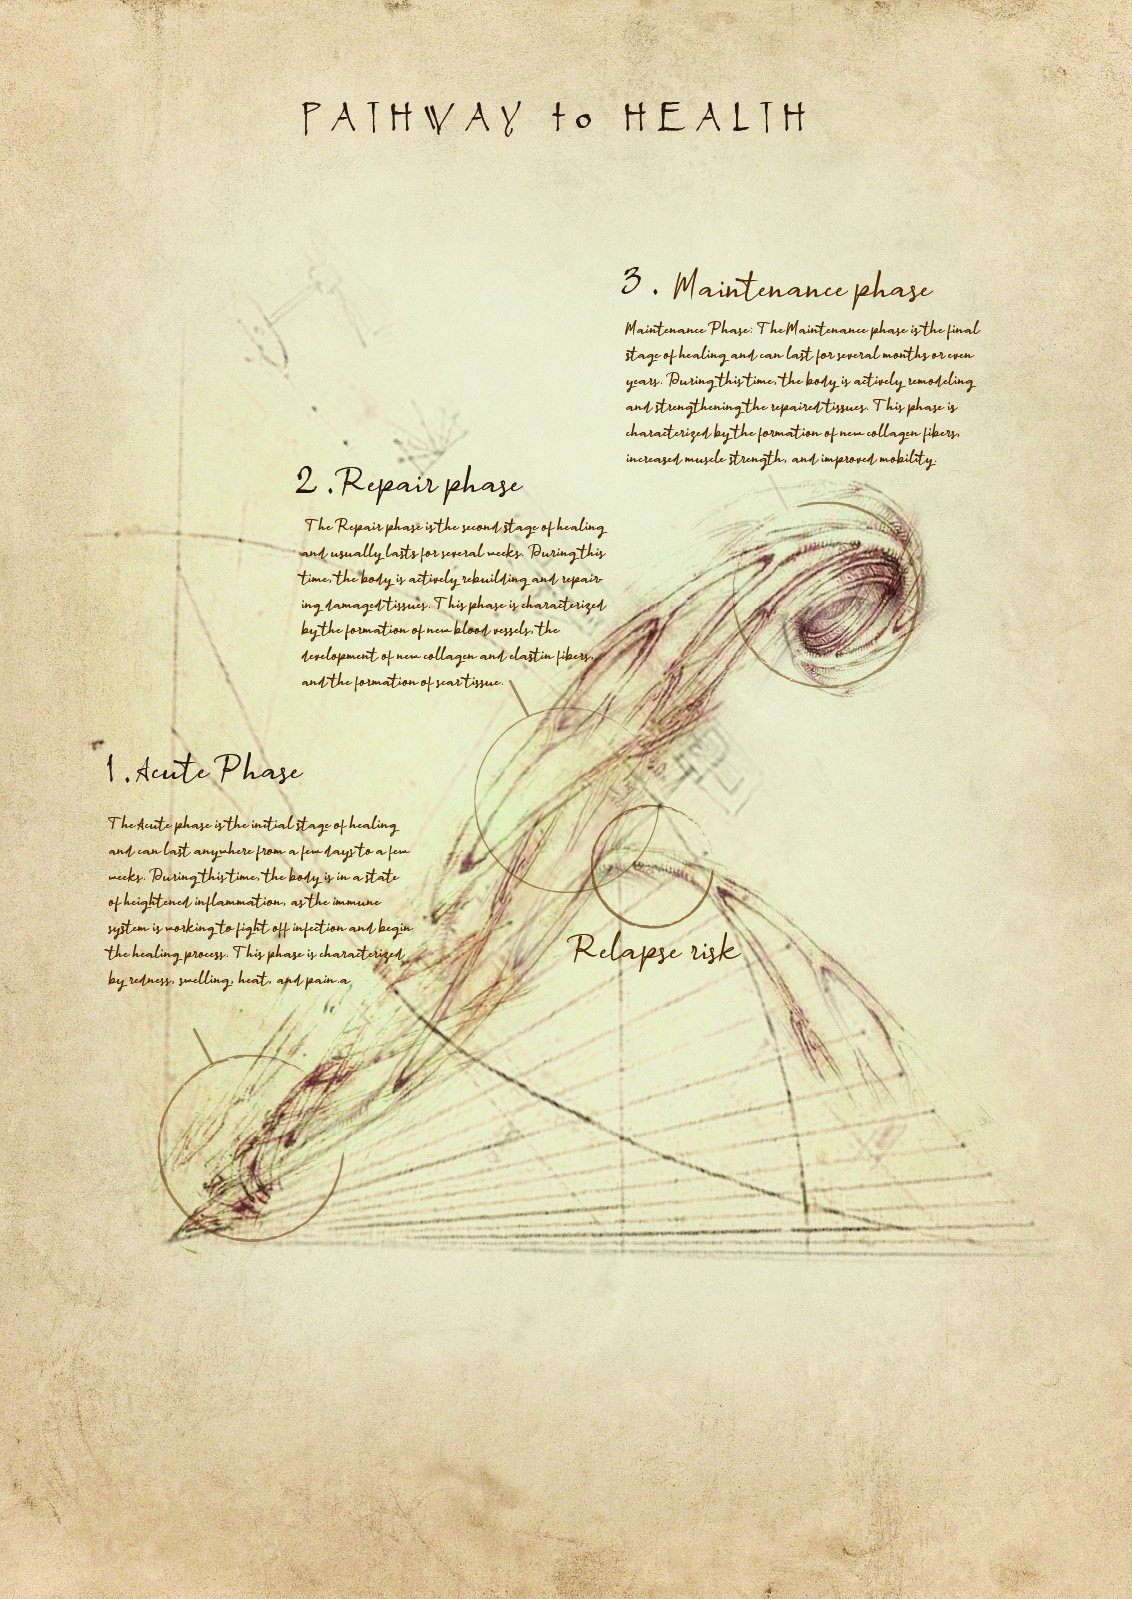 PATHWAY to HEALTH
3. Maintenance phase
Maintenance Phase: The Maintenance phase is the final
stage of healing and can last for several months or even
years. During this time, the body is actively remodeling
and strengthening the repaired tissues. This phase is
characterized by the formation of new collagen fibers,
increased muscle strength, and improved mobility.
2. Repair phase
The Repair phase is the second stage of healing
and usually lasts for several weeks. During this
time, the body is actively rebuilding and repair-
ing damaged tissues. This phase is characterized
by the formation of new blood vessels, the
development of new collagen and elastin fibers,
and the formation of scar tissue.
1. Acute Phase
The Acute phase is the initial stage of healing
and can last anywhere from a few days to a few
weeks. During this time, the body is in a state
of heightened inflammation, as the immune
system is working to fight off infection and begin
the healing process. This phase is characterized
by redness, swelling, heat, and pain.a
Relapse risk